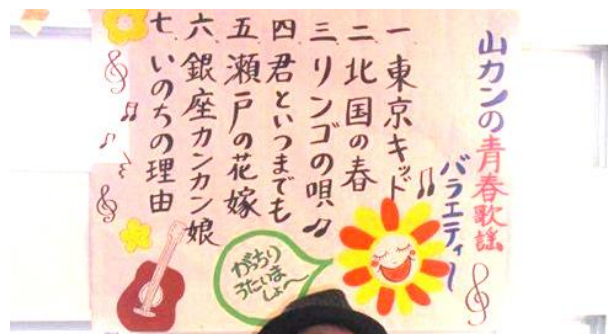 山カンの青春歌謡
バラエティー
一、東京キッド
二、北国の春
三、リンゴの唄
四、君といつまでも
五、瀬戸の花嫁
六、銀座カンカン娘
七、いのちの理由
がっちり
うたいま
しょ〜